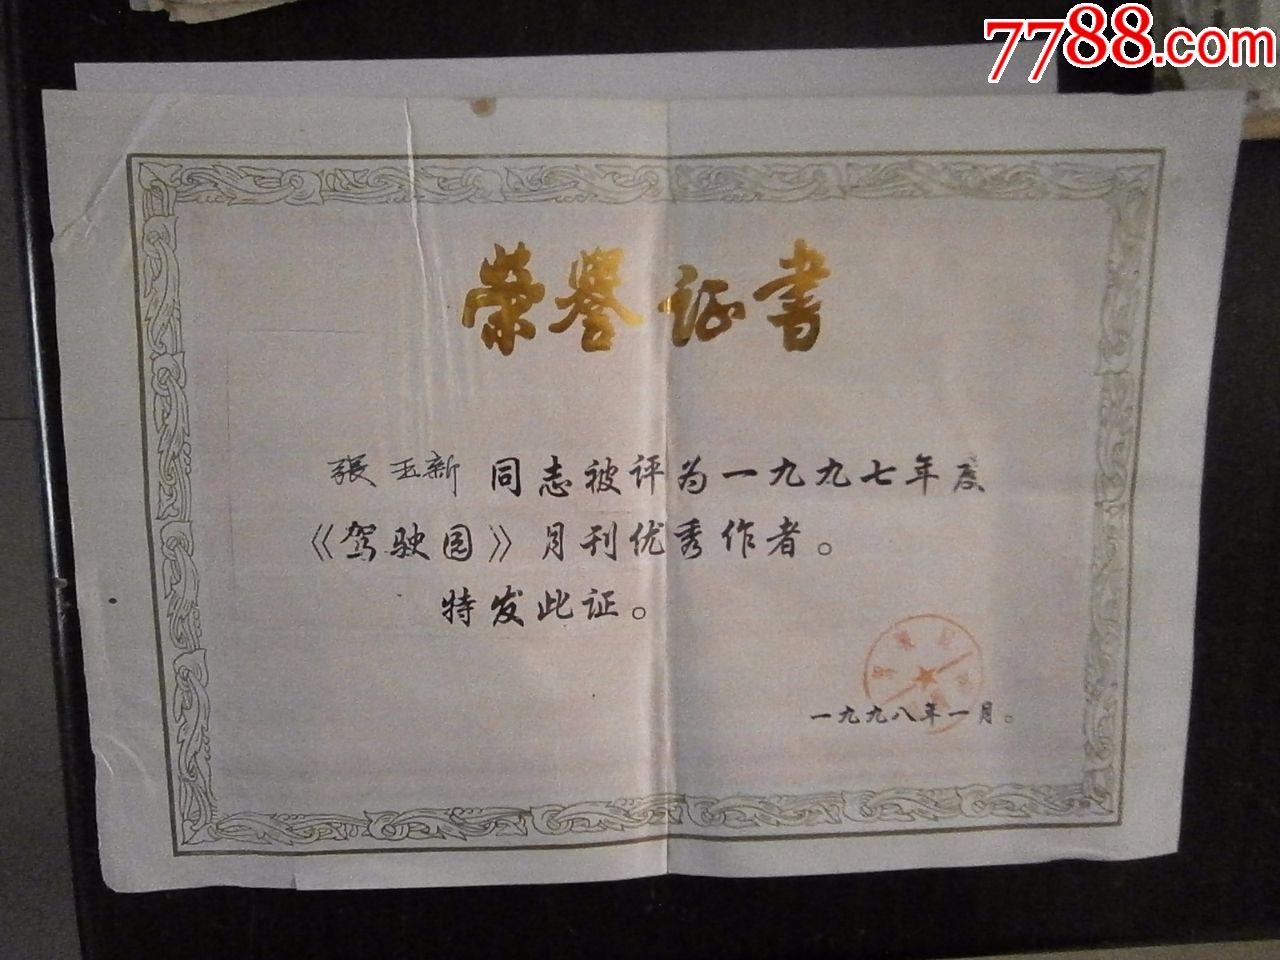 7788.com
荣誉证书
張玉新 同志被评为一九九七年度
《驾驶园》月刊优秀作者。
特发此证。
一九九八年一月。